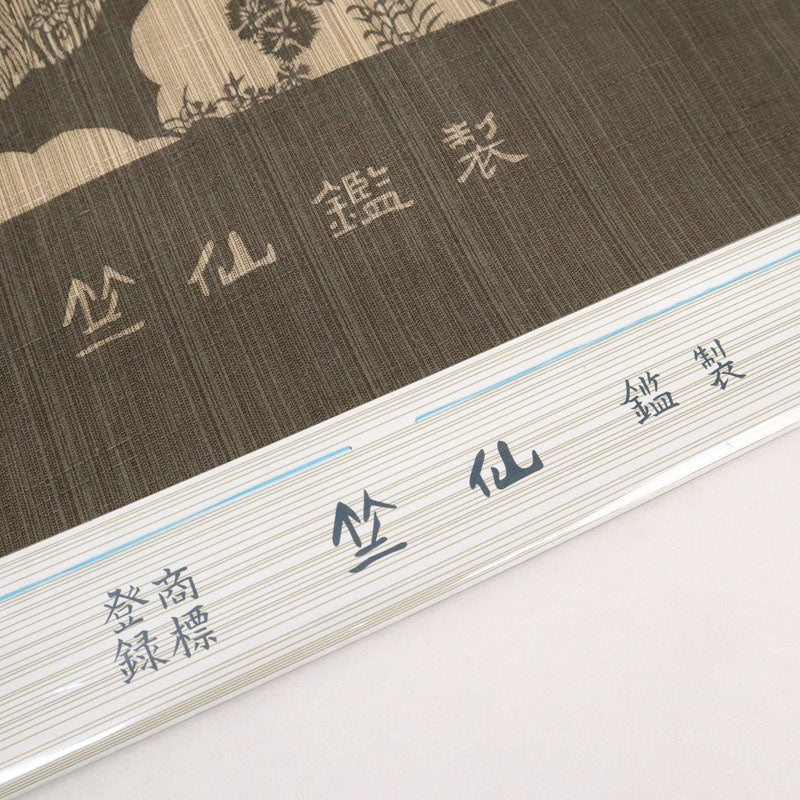 竺仙鑑製
登録商標 竺仙 鑑製